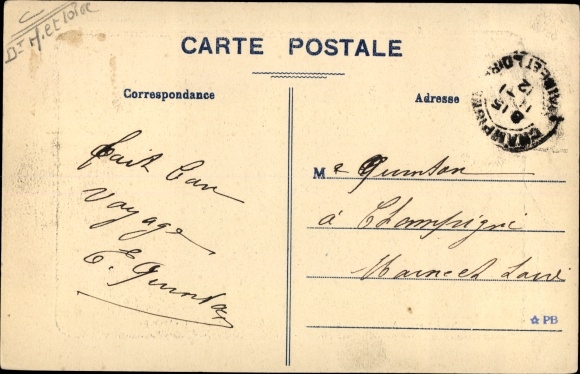 Dt M.et Loire
CARTE POSTALE
Correspondance
Adresse
fait bon
voyage
E. Quinton
Me Quinton
à Champigné
Maine et Loire
☆ PB